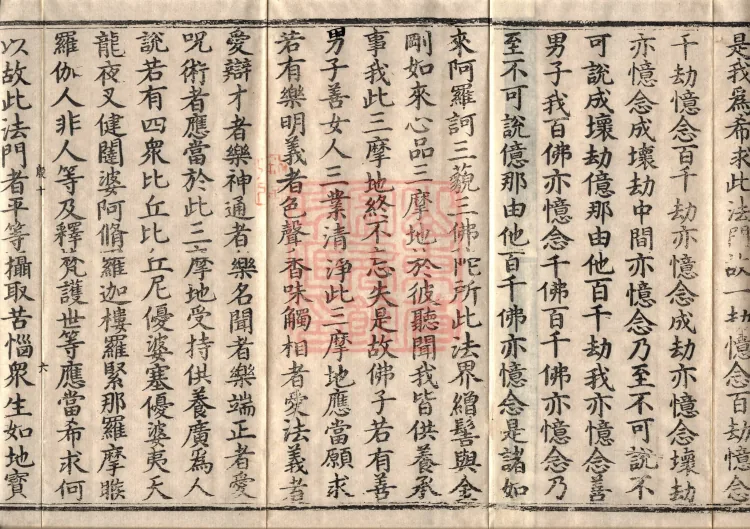 是我爲希求此法門故一劫憶念百劫憶念
千劫憶念百千劫亦憶念成劫亦憶念壞劫
亦憶念成壞劫中間亦憶念乃至不可說不
可說成壞劫億那由他百千劫我亦憶念善
男子我百佛亦憶念千佛百千佛亦憶念乃
至不可說億那由他百千佛亦憶念是諸如
來阿羅訶三藐三佛陀所此法界繒髻與金
剛如來心品三摩地於彼聽聞我皆供養承
事我此三摩地終不忘失是故佛子若有善
男子善女人三業清淨此三摩地應當願求
若有樂明義者色聲香味觸相者愛法義者
愛辯才者樂神通者樂名聞者樂端正者愛
呪術者應當於此三摩地受持供養廣爲人
說若有四衆比丘比丘尼優婆塞優婆夷天
龍夜叉健闥婆阿脩羅迦樓羅緊那羅摩睺
羅伽人非人等及釋梵護世等應當希求何
以故此法門者平等攝取苦惱衆生如地寶
六